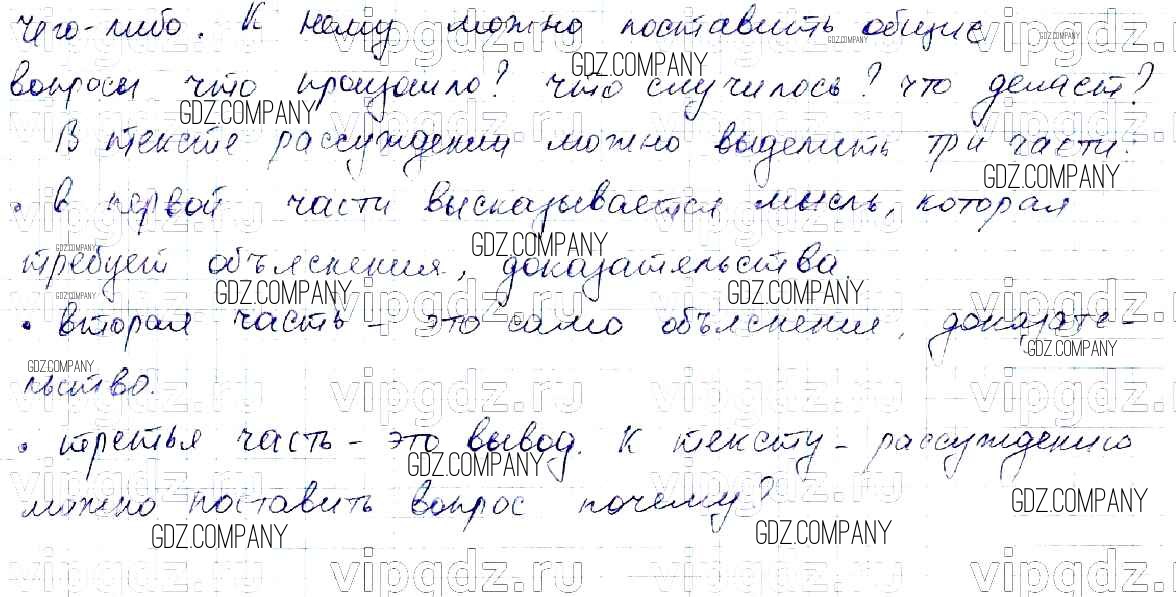 чего-либо. К нему можно поставить общие
вопросы что произошло? что случилось? что делает?
В тексте рассуждении можно выделить три части:
• в первой части высказывается мысль, которая
требует объяснения, доказательства.
• вторая часть - это само объяснение, доказате-
льство.
• третья часть - это вывод. К тексту - рассуждению
можно поставить вопрос почему?
GDZ.COMPANY
vipgdz.ru